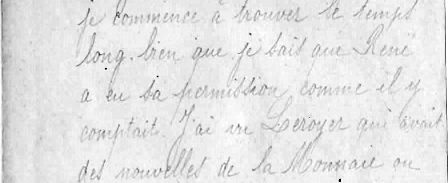 je commence à trouver le temps
long. bien que je sais que René
a eu sa permission comme il y
comptait. J'ai vu Leroyer qui avait
des nouvelles de la Monnaie ou